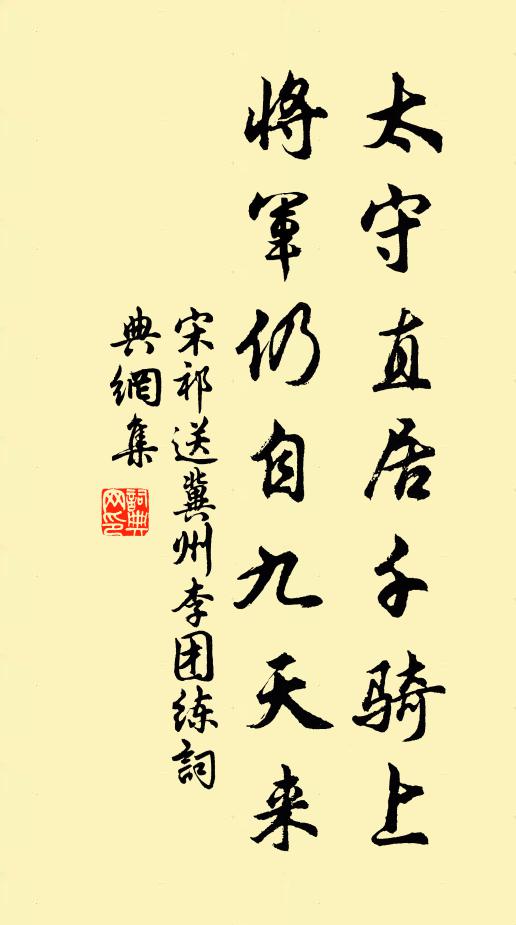 太守直居千骑上
将军仍自九天来
宋祁送冀州李团练詞
典網集
詞典網印